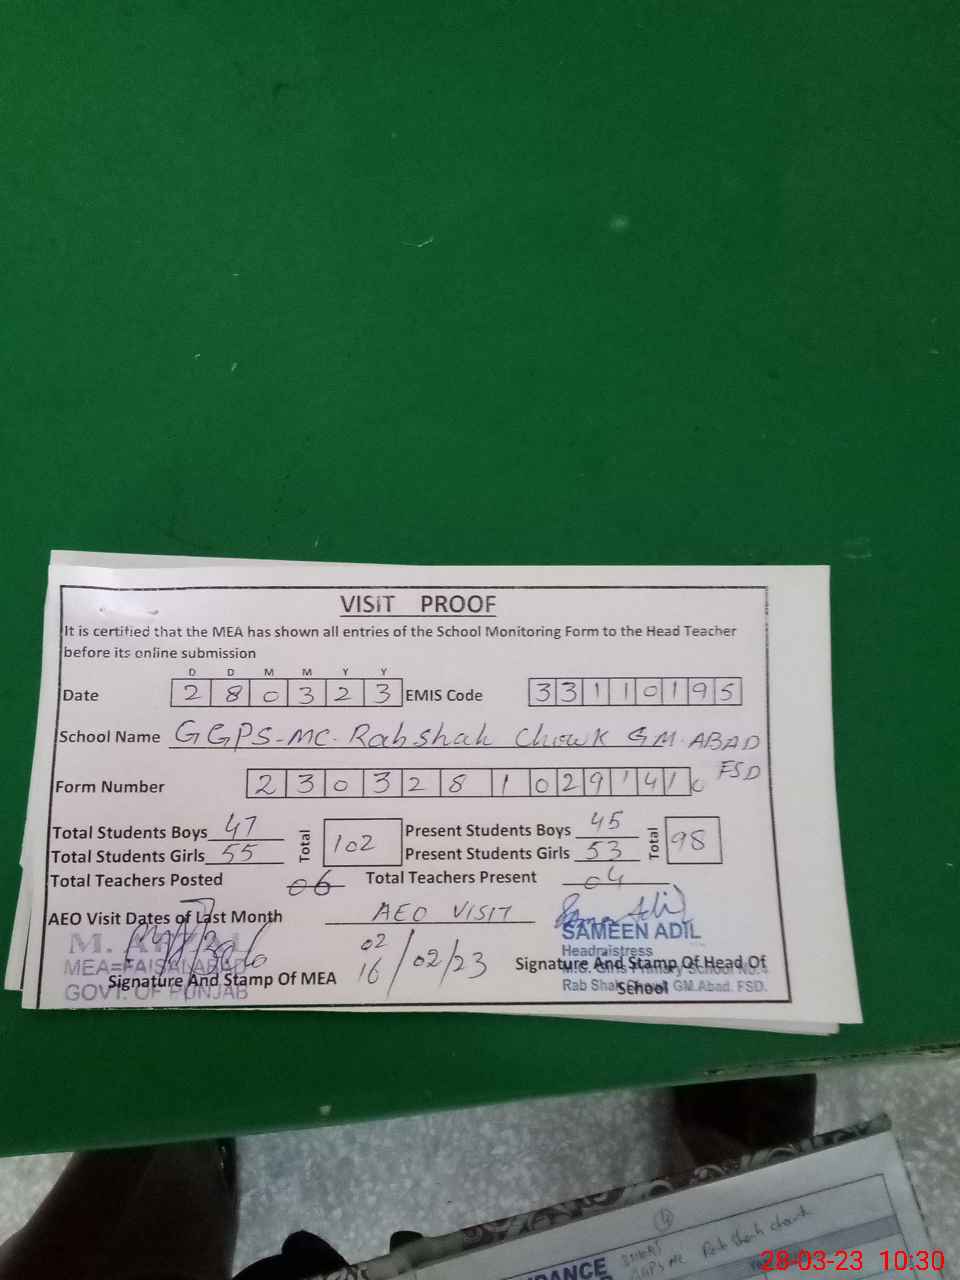 VISIT PROOF
It is certified that the MEA has shown all entries of the School Monitoring Form to the Head Teacher
before its online submission
D D M M Y Y
Date 2 8 0 3 2 3 EMIS Code 3 3 1 1 0 1 9 5
School Name GGPS-MC. Rabshah Chowk GM.ABAD
FSD
Form Number 2 3 0 3 2 8 1 0 2 9 1 4 1 0
Total Students Boys 47 Total 102 Present Students Boys 45 Total 98
Total Students Girls 55 Present Students Girls 53
Total Teachers Posted 06 Total Teachers Present 04
AEO Visit Dates of Last Month AEO VISIT
02
16/02/23
M. AFZAL
MEA=FAISALABAD
GOVT. OF PUNJAB
Signature And Stamp Of MEA
SAMEEN ADIL
Headmistress
M.C. Girls Primary School No.
Rab Shah Chowk GM.Abad. FSD.
Signature And Stamp Of Head Of
School
4
Rab Shah chowk
28-03-23 10:30